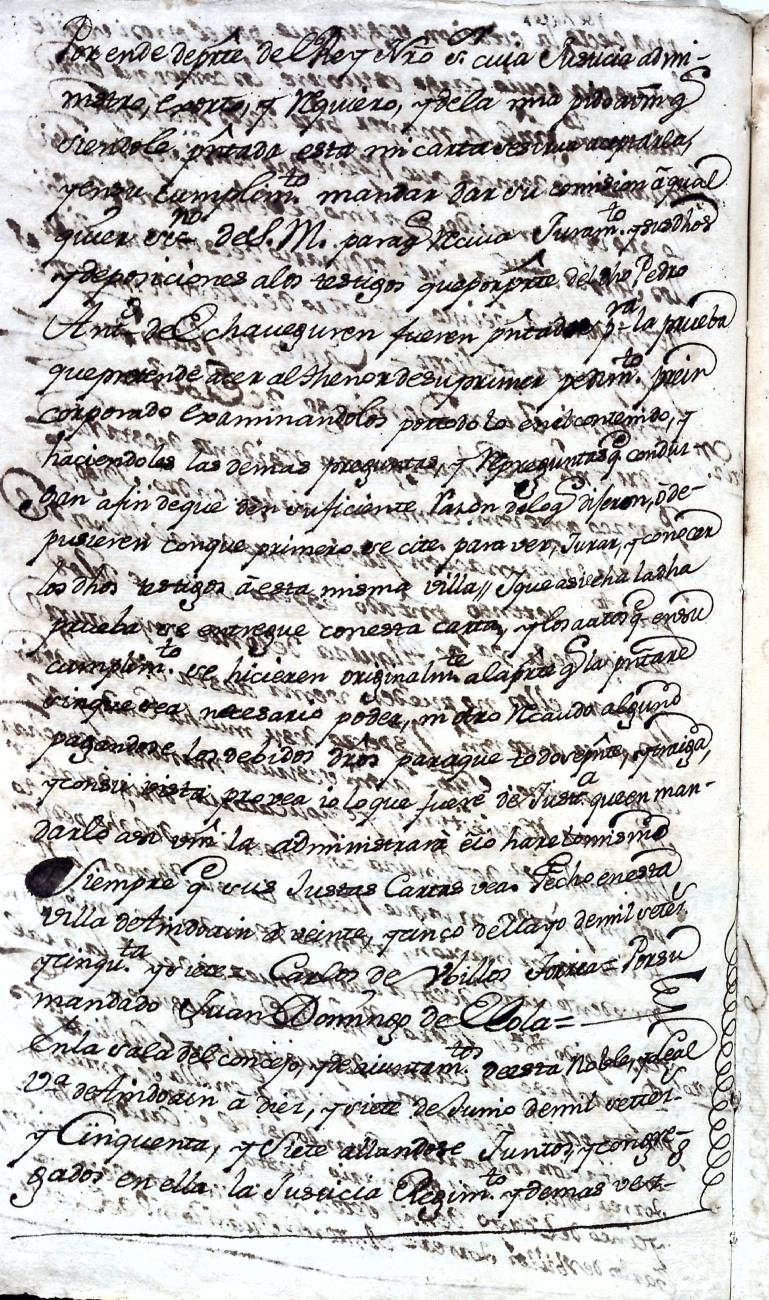 Por ende de pñte del Rey Nrõ sr cuia Justicia admi-
nistro, exorto, y Requiero, y de la mia pido a vm q̃
siendole pñtada esta mi carta se sirva aceptarla,
y en su cumplimto. mandar dar su comision â qual
quier ssno de S. M. para q̃ Reciva Juramto. y sus dhos
y deposiciones a los testigos que por pte del dho Pedro
Anto de Echaveguren fueren pñtados pra la prueba
que pretende acer al thenor de su primer pedimto. prein
corporado examinandolos por todo lo en el contenido, y
haciendoles las demas preguntas, y Repreguntas q̃ condu-
gan a fin de que den suficiente razon de lo q̃ dijeren, ô de-
pusieren con que primero se cite para ver, Jurar, y conocer
los dhos testigos â esta misma villa // I que asi echa la dha
prueba se entregue con esta carta, y los autos q̃ en su
cumplimto. se hicieren originalmte a la pte q̃ la pñtare
sin que sea necesario poder, ni otro Recaudo alguno
pagandose los debidos drõs para que todo se pñte, y traiga,
y con su vista provea io lo que fuere de Justa que en man-
darlo asi vm la administrará è io hare lo mismo
Siempre q̃ sus Justas Cartas vea. Fecho en esta
Villa de Andoain â veinte, y cinco de Mayo de mil setes
y cinquta y siete = Carlos de Ubillos Jorria = Por su
mandado Juan Domingo de Elola =
En la sala del concejo, y de aiuntamtos de esta Noble, y Leal
Va de Andoain â diez, y siete de Junio de mil setters
y Cinquenta, y Siete allandose Juntos, y congre-
gados en ella la Justicia Regimto. y demas vez-